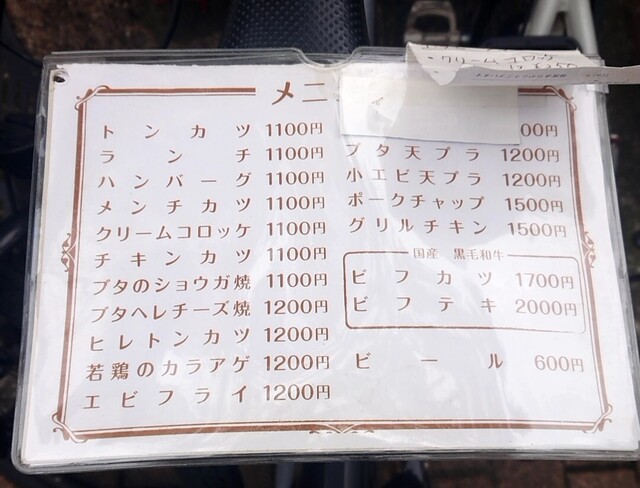 クリームコロッケ
メニ
トンカツ 1100円
ランチ 1100円
ハンバーグ 1100円
メンチカツ 1100円
クリームコロッケ 1100円
チキンカツ 1100円
ブタのショウガ焼 1100円
ブタヘレチーズ焼 1200円
ヒレトンカツ 1200円
若鶏のカラアゲ 1200円
エビフライ 1200円
00円
ブタ天プラ 1200円
小エビ天プラ 1200円
ポークチャップ 1500円
グリルチキン 1500円
国産 黒毛和牛
ビフカツ 1700円
ビフテキ 2000円
ビール 600円